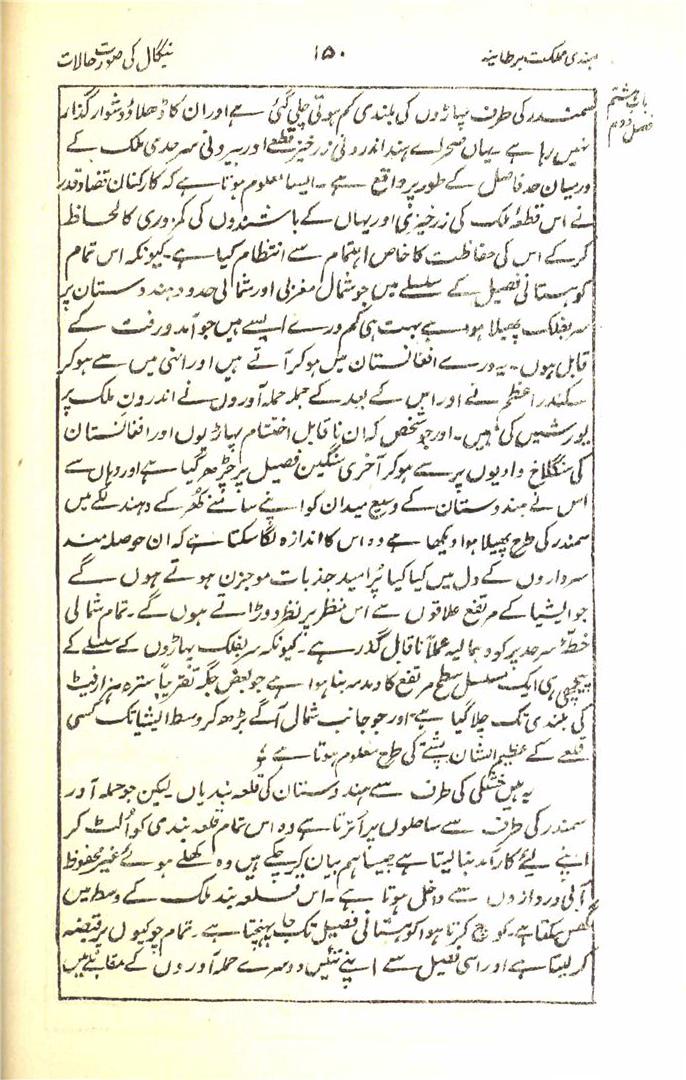 ہندی مملکت برطانیہ ۱۵۰ بنگال کی صورت حالات
باب ہشتم
فصل دوم
سمندر کی طرف پہاڑوں کی بلندی کم ہوتی چلی گئی ہے اور ان کا ڈھلاؤ دشوار گذار
نہیں رہا ہے ۔ یہاں صحرائے ہند اندرونی زرخیز قطعے اور بیرونی سرحدی ملک کے
درمیان حد فاصل کے طور پر واقع ہے ۔ ایسا معلوم ہوتا ہے کہ کارکنان قضا و قدر
نے اس قطعۂ ملک کی زرخیزی اور یہاں کے باشندوں کی کمزوری کا لحاظ
کر کے اس کی حفاظت کا خاص اہتمام سے انتظام کیا ہے ۔ کیونکہ اس تمام
کوہستانی فصیل کے سلسلے میں جو شمال مغربی اور شمالی حدود ہندوستان پر
سر بفلک پھیلا ہوا ہے بہت ہی کم درے ایسے ہیں جو آمد ورفت کے
قابل ہوں ۔ یہ درے افغانستان میں ہو کر آتے ہیں اور انہی میں سے ہو کر
سکندر اعظم نے اور اس کے بعد کے جملہ حملہ آوروں نے اندرون ملک پر
یورشیں کی ہیں ۔ اور جو شخص کہ ان ناقابل اختتام پہاڑیوں اور افغانستان
کی سنگلاخ وادیوں پر سے ہو کر آخری سنگین فصیل پر چڑھ گیا ہے اور وہاں سے
اس نے ہندوستان کے وسیع میدان کو اپنے سامنے کُھر کے دھندلکے میں
سمندر کی طرح پھیلا ہوا دیکھا ہے وہ اس کا اندازہ لگا سکتا ہے کہ ان حوصلہ مند
سرداروں کے دل میں کیا کیا پُر امید جذبات موجزن ہوتے ہوں گے
جو ایشیا کے مرتفع علاقوں سے اس منظر پر نظر دوڑاتے ہوں گے ۔ تمام شمالی
خطۂ سرحد پر کوہ ہمالیہ عملاً ناقابل گذر ہے ۔ کیونکہ سر بفلک پہاڑوں کے سلسلے کے
پیچھے ہی ایک مسلسل سطح مرتفع کا دمدمہ بنا ہوا ہے جو بعض جگہ تقریباً سترہ ہزار فیٹ
کی بلندی تک چلا گیا ہے اور جو جانب شمال آگے بڑھ کر وسط ایشیا تک کسی
قلعے کے عظیم الشان پشتے کی طرح معلوم ہوتا ہے ؛
یہ ہیں خشکی کی طرف سے ہندوستان کی قلعہ بندیاں لیکن جو حملہ آور
سمندر کی طرف سے ساحلوں پر اُترتا ہے وہ اس تمام قلعہ بندی کو اُلٹ کر
اپنے لئے کار آمد بنا لیتا ہے جیسا ہم بیان کر چکے ہیں وہ کھلے ہوئے غیر محفوظ
آبی دروازوں سے داخل ہوتا ہے ۔ اس قلعہ بند ملک کے وسط میں
گھس سکتا ہے ۔ کوچ کرتا ہوا کوہستانی فصیل تک جا پہنچتا ہے ۔ تمام چوکیوں پر قبضہ
کر لیتا ہے اور اسی فصیل سے اپنے تئیں دوسرے حملہ آوروں کے مقابلے میں